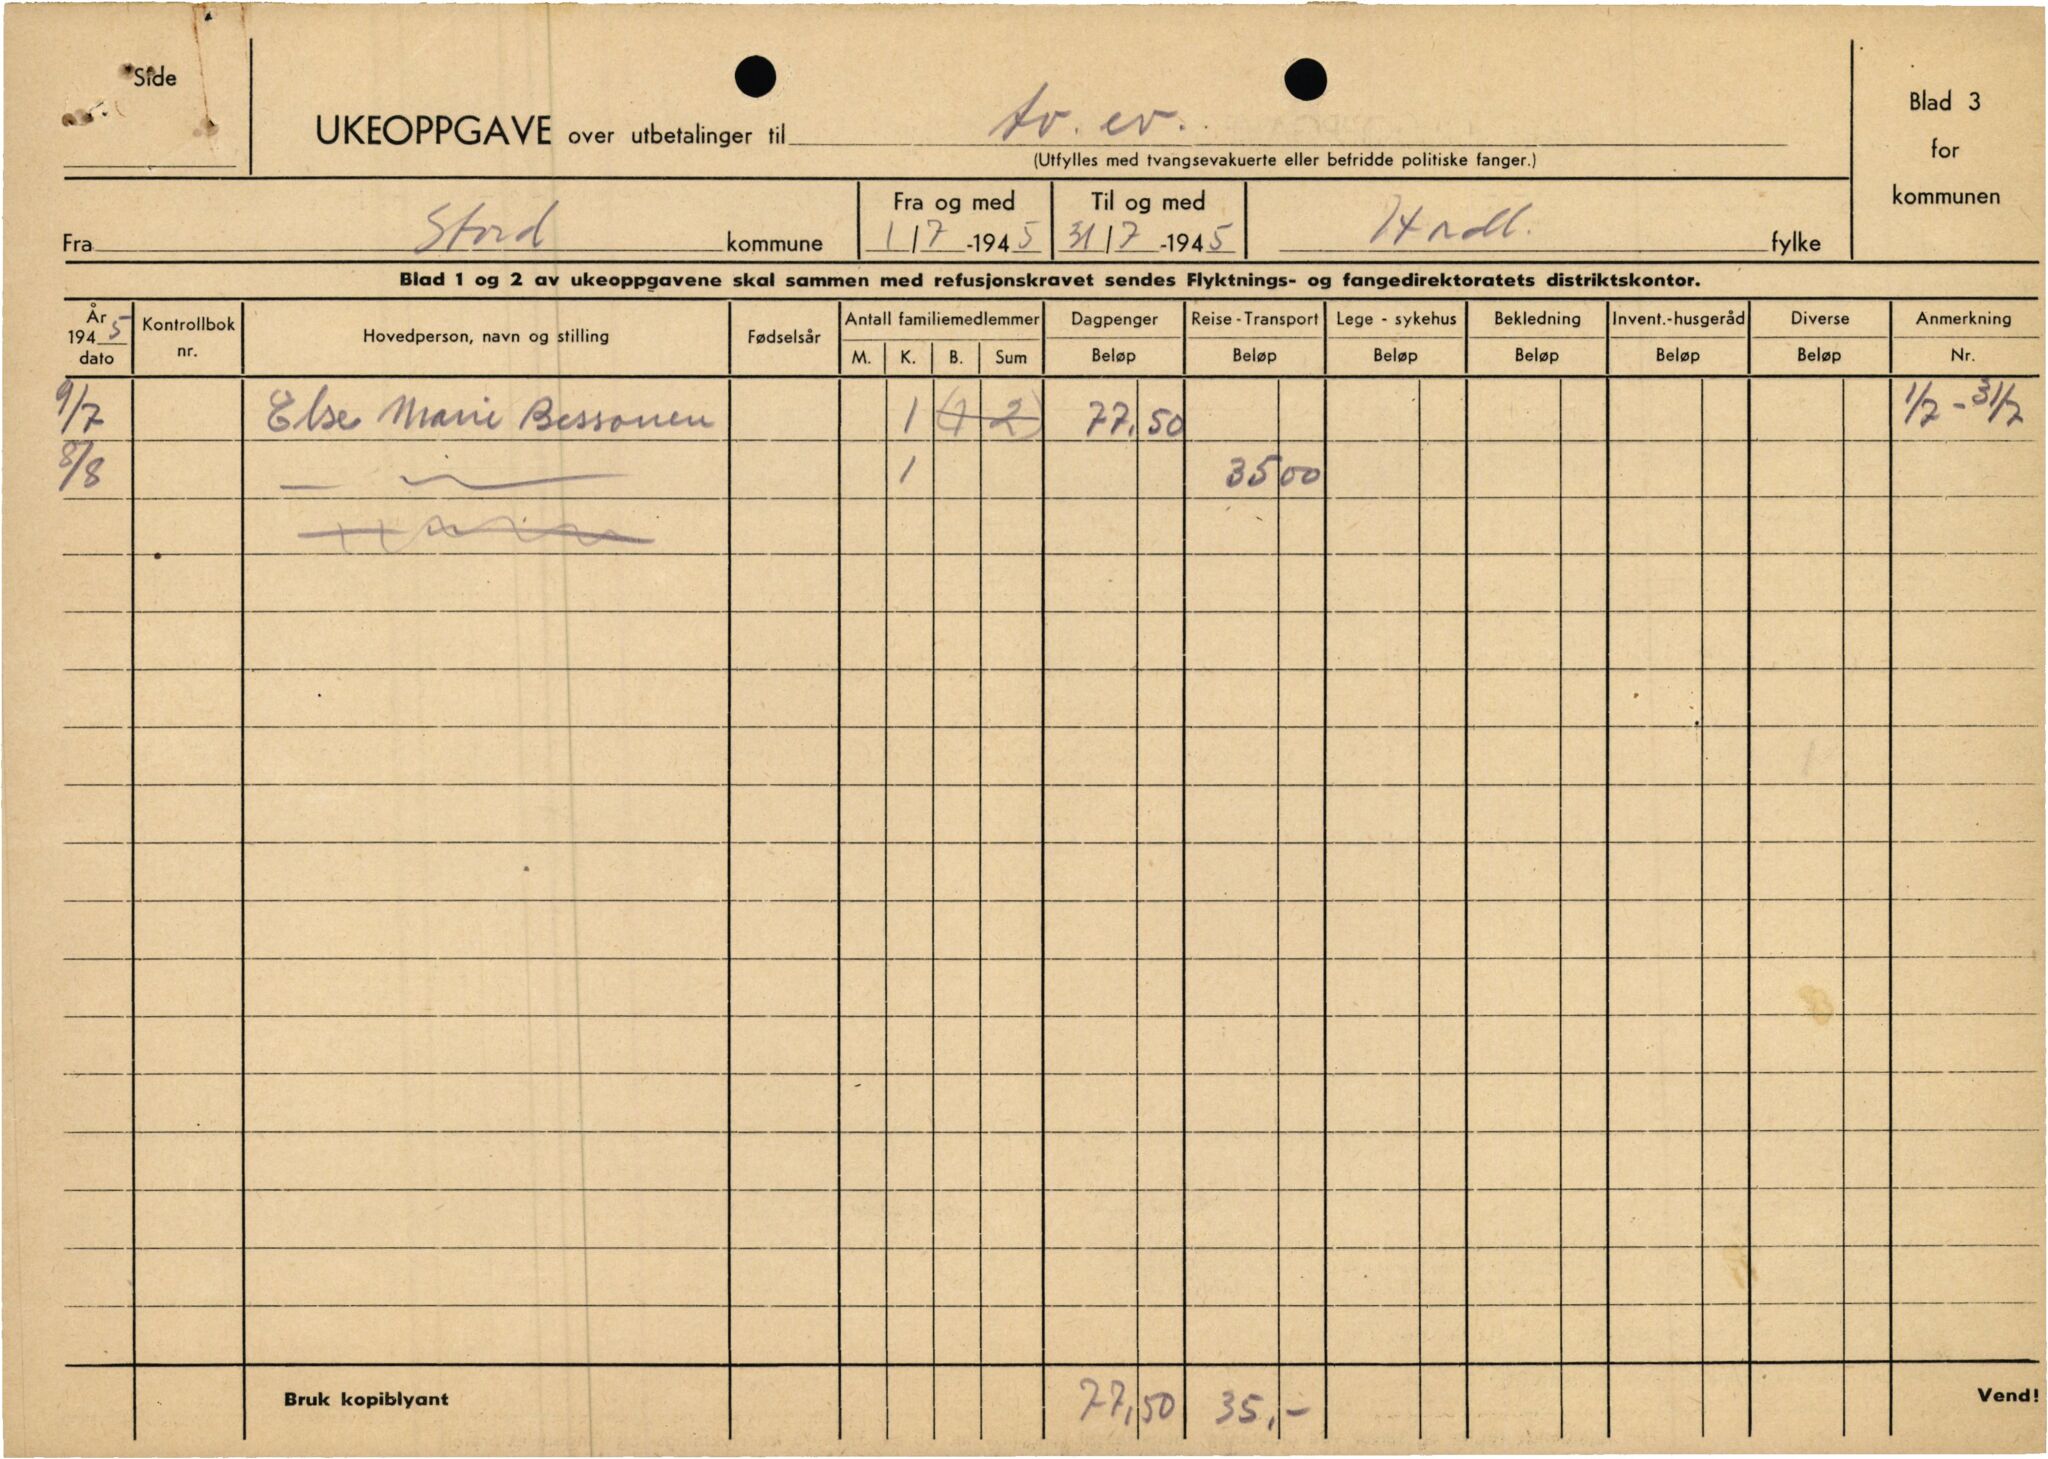 Side
UKEOPPGAVE over utbetalinger til tv. ev.
(Utfylles med tvangsevakuerte eller befridde politiske fanger.)
Blad 3
for
kommunen
Fra Stord kommune
Fra og med
1/7 -1945
Til og med
31/7 -1945
Hordl. fylke
Blad 1 og 2 av ukeoppgavene skal sammen med refusjonskravet sendes Flyktnings- og fangedirektoratets distriktskontor.
År 1945 dato
Kontrollbok nr.
Hovedperson, navn og stilling
Fødselsår
Antall familiemedlemmer
M. K. B. Sum
Dagpenger Beløp
Reise - Transport Beløp
Lege - sykehus Beløp
Bekledning Beløp
Invent.-husgeråd Beløp
Diverse Beløp
Anmerkning Nr.
9/7 Else Marie Bessonen 1 (1 2) 77,50 1/7 - 31/7
8/8 — " — 1 35 00
Bruk kopiblyant 77,50 35,- Vend!